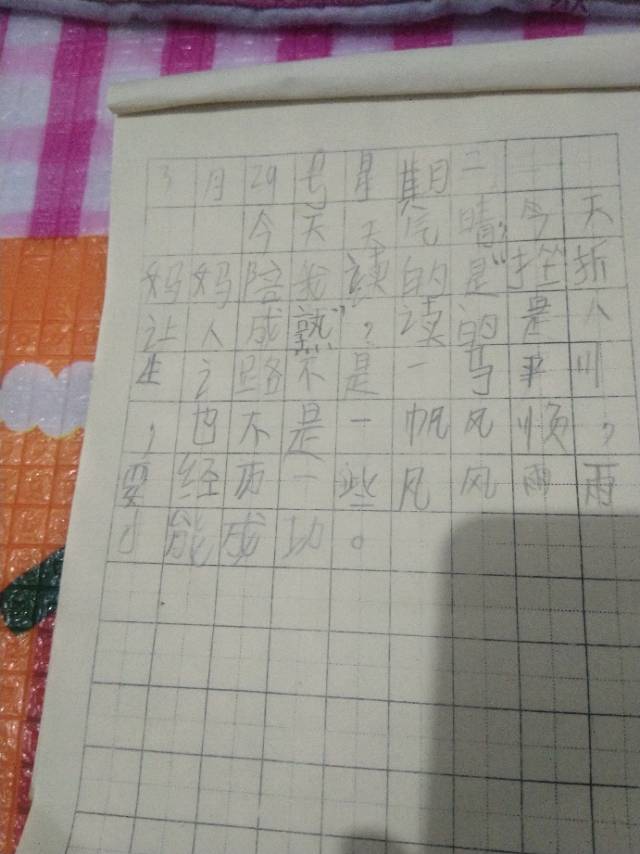 3月29号星期二
今天天气晴,今天
妈妈陪我读的是“挫折
让人成熟”,读的是人
生之路不是一马平川
,也不是一帆风顺,
要经历一些风风雨雨
才能成功。